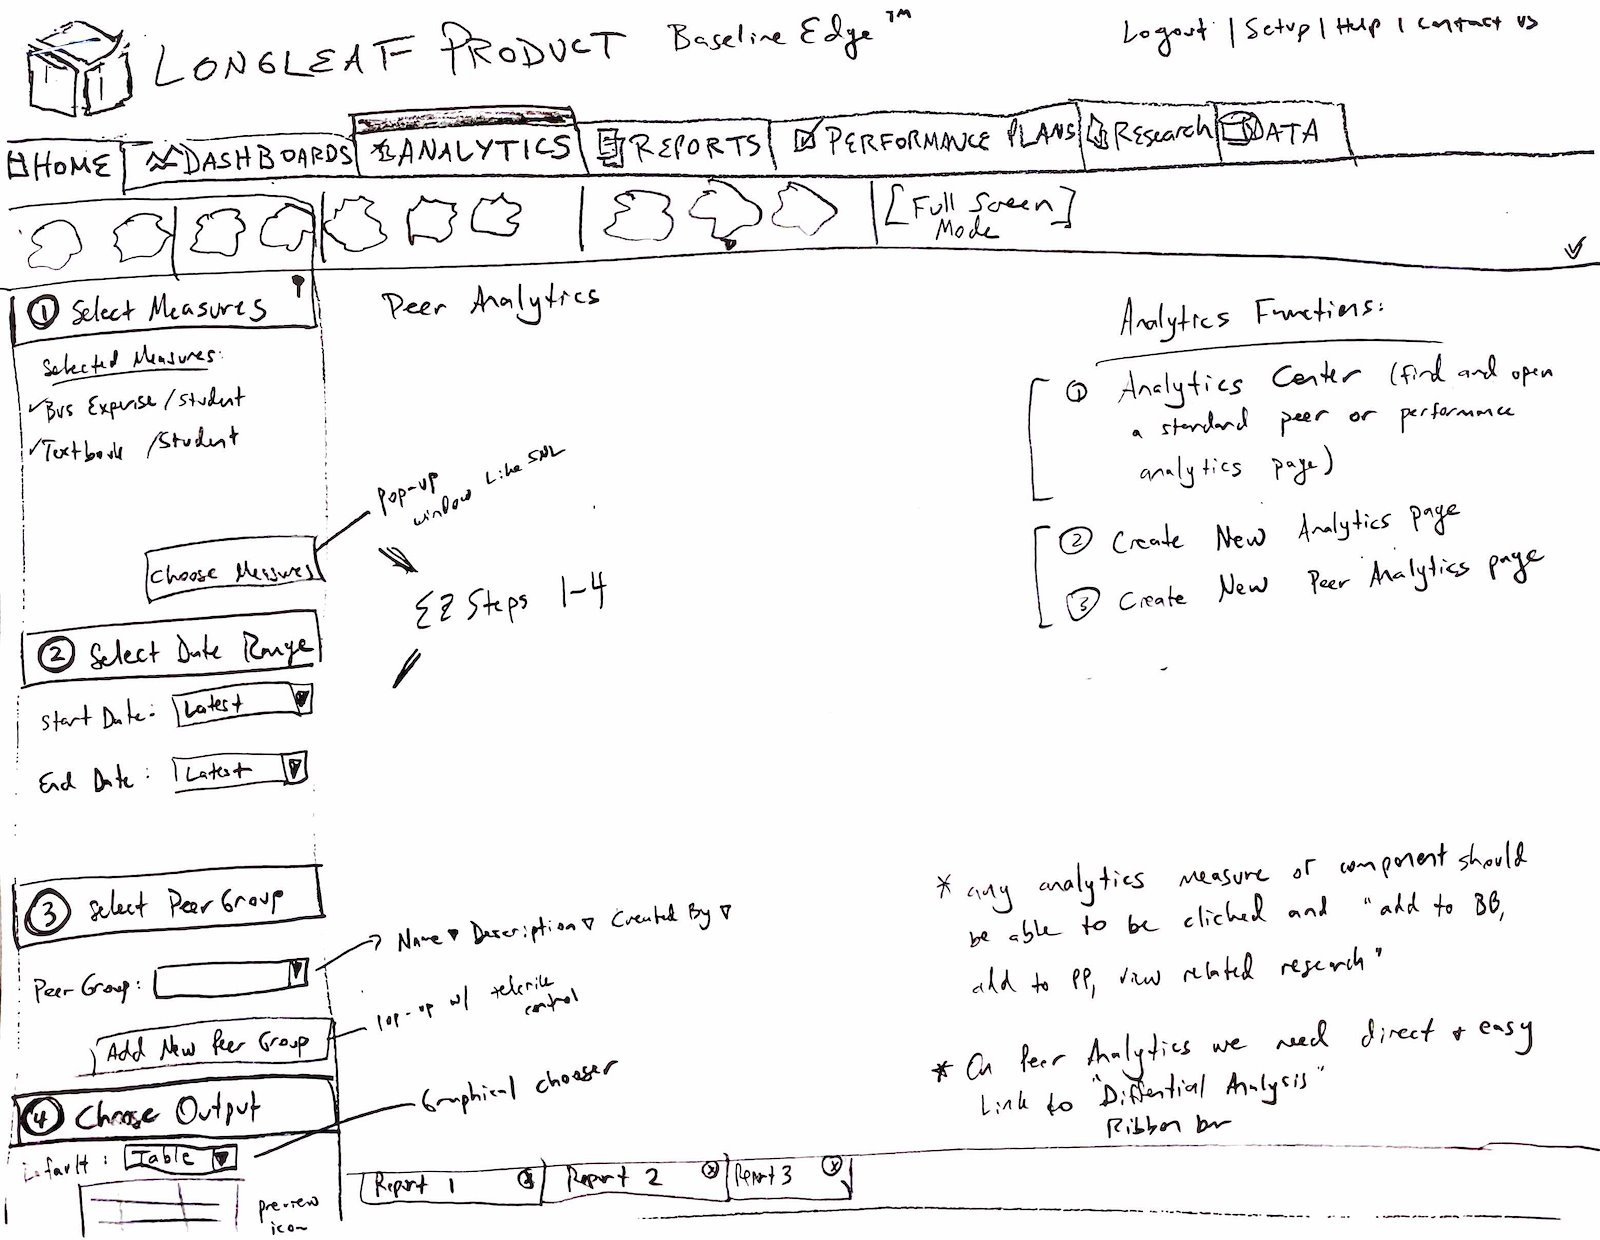 LONGLEAF PRODUCT Baseline Edge™
Logout | Setup | Help | Contact us
HOME DASHBOARDS ANALYTICS REPORTS PERFORMANCE PLANS Research DATA
[Full Screen]
Mode
① Select Measures
Selected Measures:
✓Bus Expense/student
✓Textbook /Student
Pop-up
window Like SNL
Choose Measures
② Select Date Range
Start Date: Latest
End Date: Latest
③ Select Peer Group
Peer Group:
Name ▼ Description ▽ Created By ▽
Add New Peer Group
Pop-up w/ telerik
control
④ Choose Output
Default: Table
Graphical chooser
preview
icon
Peer Analytics
EZ Steps 1-4
Report 1 ⓧ Report 2 ⓧ Report 3 ⓧ
Analytics Functions:
① Analytics Center (find and open
a standard peer or performance
analytics page)
② Create New Analytics page
③ Create New Peer Analytics page
* any analytics measure or component should
be able to be clicked and "add to BB,
add to PP, view related research"
* On Peer Analytics we need direct & easy
Link to "Diffential Analysis"
Ribbon bar